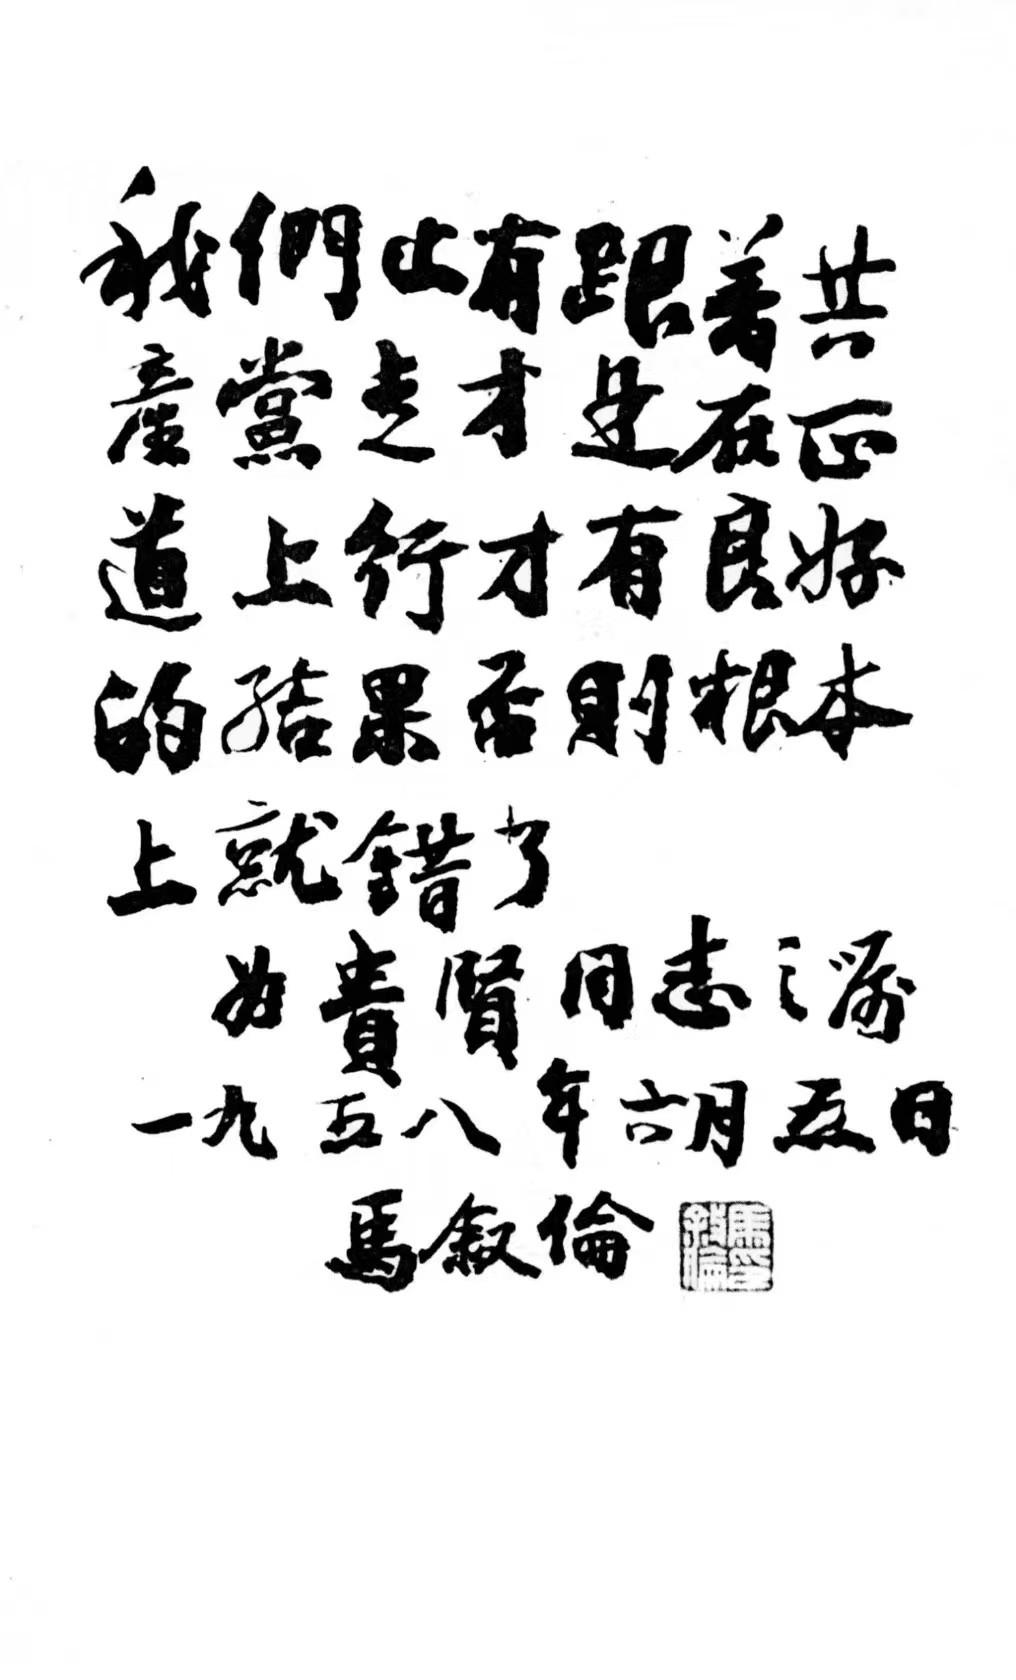 我們止有跟着共
產黨走才是在正
道上行才有良好
的結果否則根本
上就錯了
为貴賢同志之嘱
一九五八年六月五日
馬叙倫
馬叙倫印